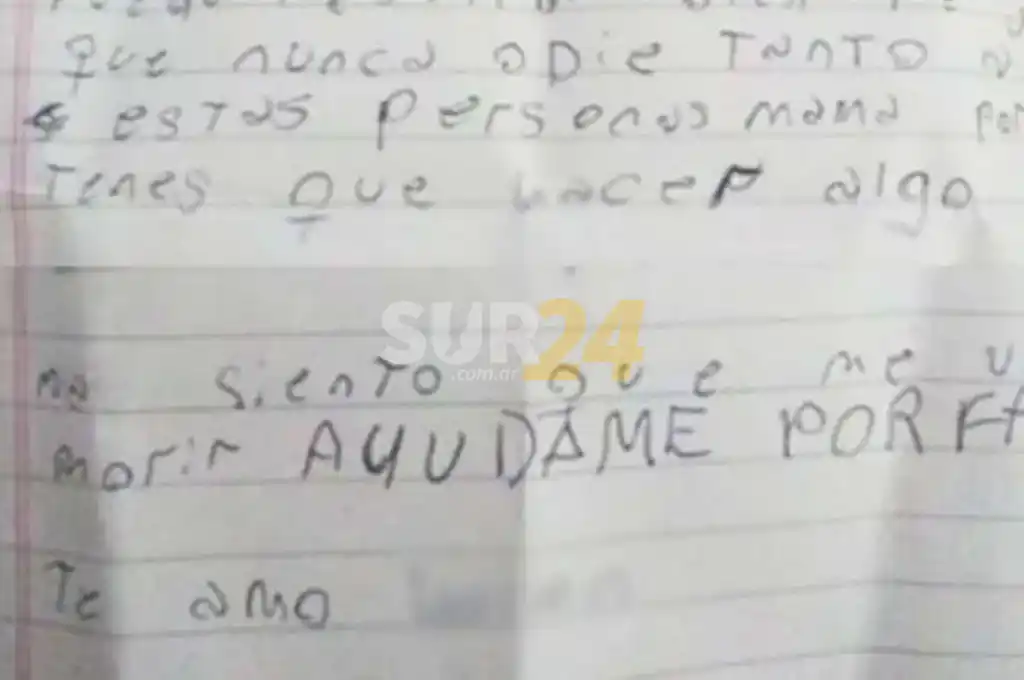 que nunca odie TanTo a
estas personas mama
Tenes que hacer algo
SUR24
.com.ar
ma siento que me
morir AYUDAME POR
Te amo